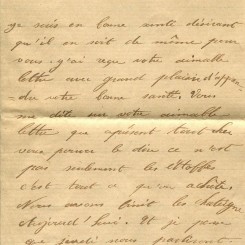 je suis en bonne santé désirant
qu'il en soit de même pour
vous j'ai reçu votre aimable
lettre avec grand plaisir d'appren
dre votre bonne santé. Vous
me dites sur votre aimable
lettre que à présent tout cher
vous pouvez le dire ce n'est
pas seulement les étoffes
c'est tout ce qu'on achète.
Nous avons finit les
Aujourd'hui. Et je pense
que jeudi nous